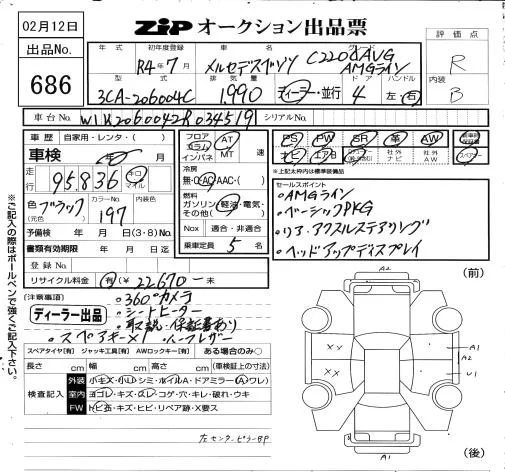 02月12日
ZIP オークション出品票
評価点
出品No.
686
年式 初年度登録 車名 グレード
R4年7月 メルセデスベンツ C220d AVG AMGライン
R
型式 排気量 ドア ハンドル
3CA-206004C 1,990 ディーラー・並行 4 左・右
内装
B
車台No. W1K2060042R034519 シリアルNo.
車歴 自家用・レンタ・( )
車検 年 月
走行 95836 キロ マイル
色 ブラック (元色) カラーNo. 197 内装色
予備検 年 月 日 (3・8) No.
書類有効期限 年 月 日
登録No.
リサイクル料金 有(¥ 22670 ー 未
フロア コラム インパネ AT MT 速
冷房 無・AC・AAC・( )
燃料 ガソリン・軽油・電気・その他( )
Nox 適合・非適合
乗車定員 5 名
PS PW SR 革 AW
ナビ エアB 社外ナビ 社外AW
*上記太枠内は標準装備
セールスポイント
・AMGライン
・ベーシックPKG
・リアアクスルステアリング
・ヘッドアップディスプレイ
(注意事項)
ディーラー出品
・360°カメラ
・シートヒーター
・取説・保証書あり
・スペアキー×1 ・ハーフレザー
スペアタイヤ[有] ジャッキ工具[有] AWロックキー[有] ある場合のみ○
長さ cm 幅 cm 高さ cm (車検証上の寸法)
検査記入
外装 小キズ・小凹・シミ・ホイルA・ドアミラー(A・ワレ)
室内 ヨゴレ・キズ・スレ・コゲ・穴・キレ・破れ・ウキ
FW トビ石・キズ・ヒビ・リペア跡・X要ス
左センターピラーBP
※ご記入の際はボールペンで強くご記入下さい。
(前)
A2
XX
XX
A1
A2
U1
A1
(後)